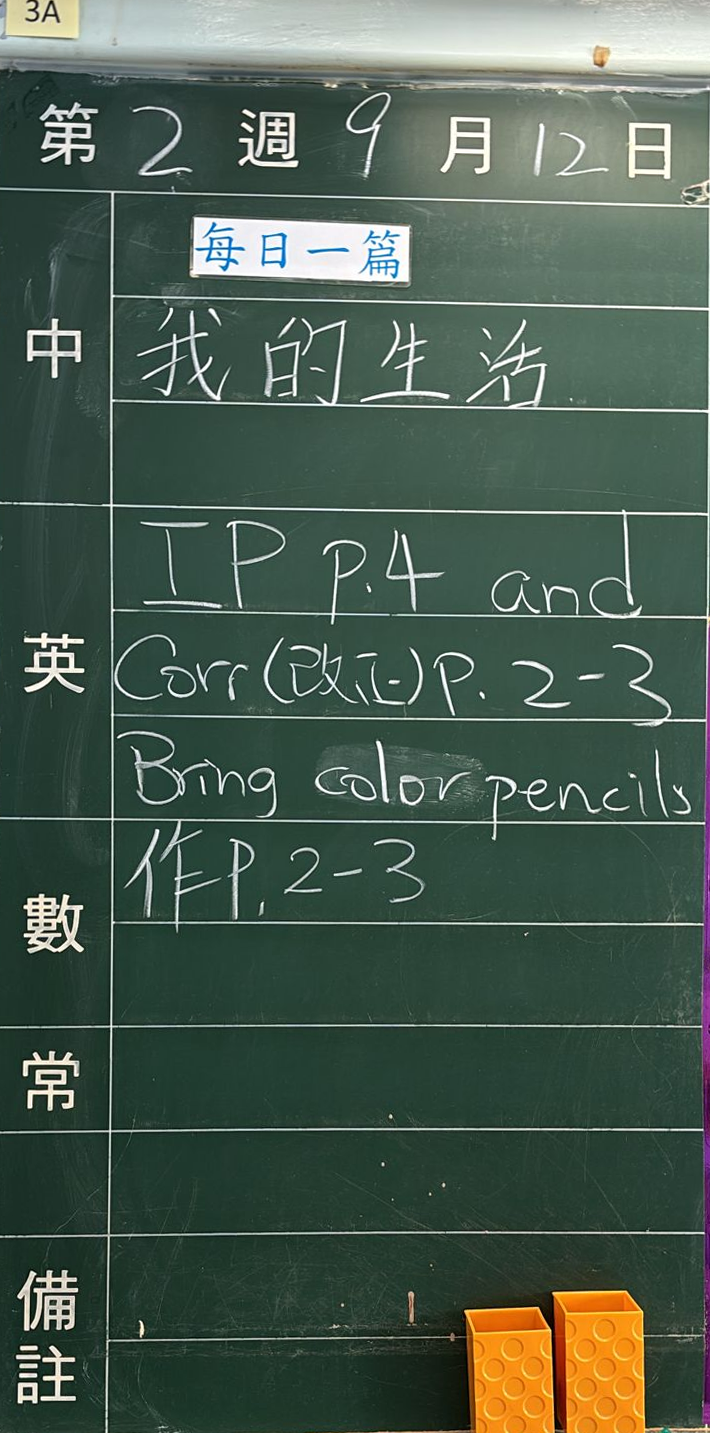 3A
第 2 週 9 月 12 日
每日一篇
中 我的生活
IP p.4 and
英 Corr(改正)P. 2-3
Bring color pencils
作P. 2-3
數
常
備
註